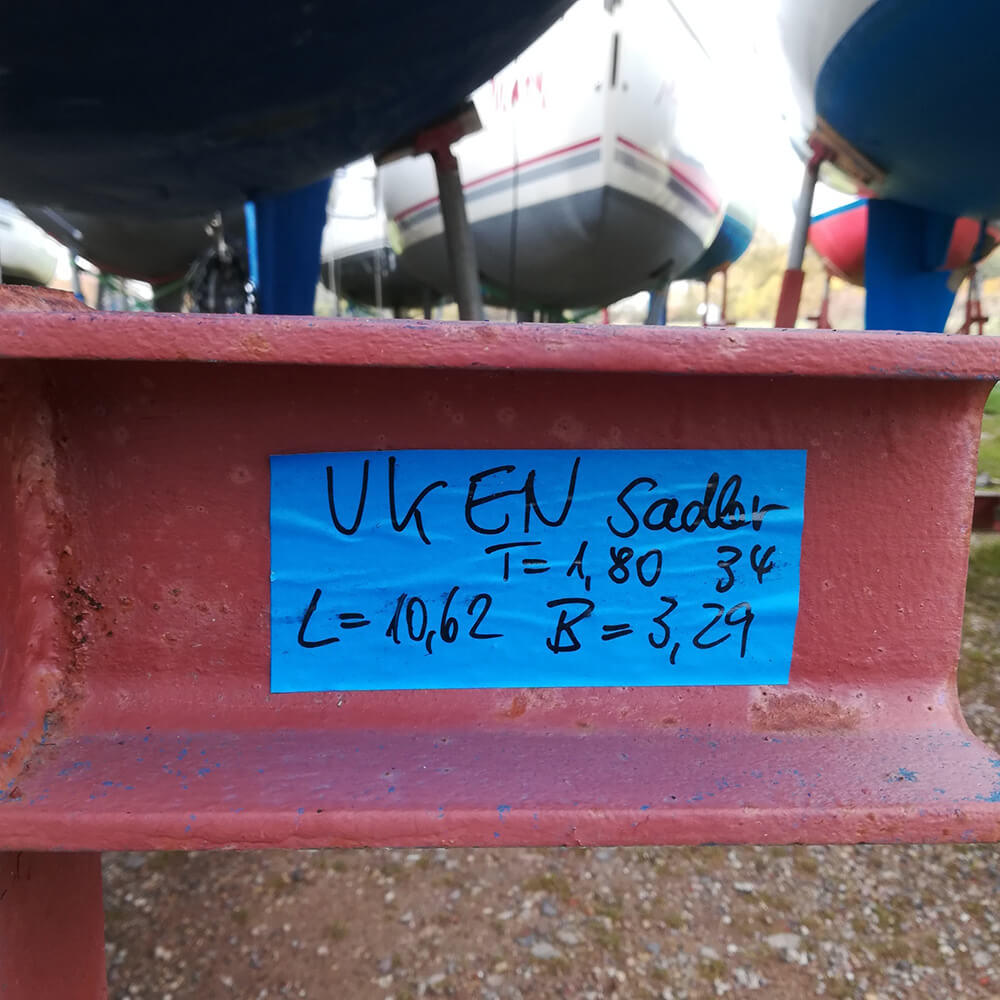 UKEN Sadler
T=1,80 34
L=10,62 B=3,29